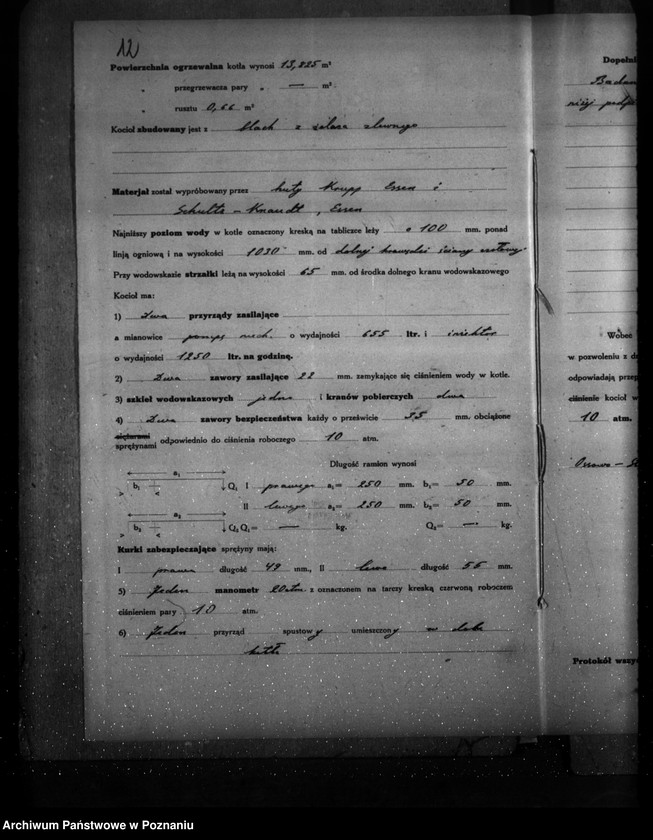 12
Powierzchnia ogrzewalna kotła wynosi 13,825 m²
„ przegrzewacza pary „ — m²
„ rusztu 0,66 m²
Kocioł zbudowany jest z blach z żelaza zlewnego
Materjał został wypróbowany przez huty Krupp Essen i
Schultz – Knaudt, Essen
Najniższy poziom wody w kotle oznaczony kreską na tabliczce leży o 100 mm. ponad
linją ogniową i na wysokości 1030 mm. od dolnej krawędzi ściany
Przy wodowskazie strzałki leżą na wysokości 65 mm. od środka dolnego kranu wodowskazowego
Kocioł ma:
1) Dwa przyrządy zasilające
a mianowicie pompę mech. o wydajności 655 ltr. i inżektor
o wydajności 1250 ltr. na godzinę.
2) Dwa zawory zasilające 22 mm. zamykające się ciśnieniem wody w kotle.
3) szkieł wodowskazowych jedno i kranów pobierczych dwa
4) Dwa zawory bezpieczeństwa każdy o prześwicie 35 mm. obciążone
ciężarami
sprężynami odpowiednio do ciśnienia roboczego 10 atm.
Długość ramion wynosi
a₁
b₁ Q₁ I prawego a₁= 250 mm. b₁= 50 mm.
II lewego a₂= 250 mm. b₂= 50 mm.
a₂
b₂ Q₂ Q₁= — kg. Q₂= — kg.
Kurki zabezpieczające sprężyny mają:
I prawa długość 49 mm., II lewa długość 55 mm.
5) Jeden manometr 20 atm. z oznaczonem na tarczy kreską czerwoną roboczem
ciśnieniem pary 10 atm.
6) Jeden przyrząd spustowy umieszczony w dole
kotła
Dopełni
Badan
niżej
Wobec
w pozwoleniu z d
odpowiadają przep
ciśnienie kocioł w
10 atm.
Protokół wszy
Archiwum Państwowe w Poznaniu